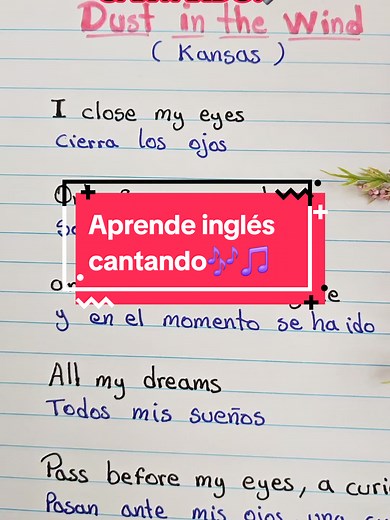 Dust in the Wind
( Kansas )
I close my eyes
Cierra los ojos
Aprende inglés
cantando🎶🎵
y en el momento se ha ido
All my dreams
Todos mis sueños
Pass before my eyes, a
Pasan ante mis ojos una